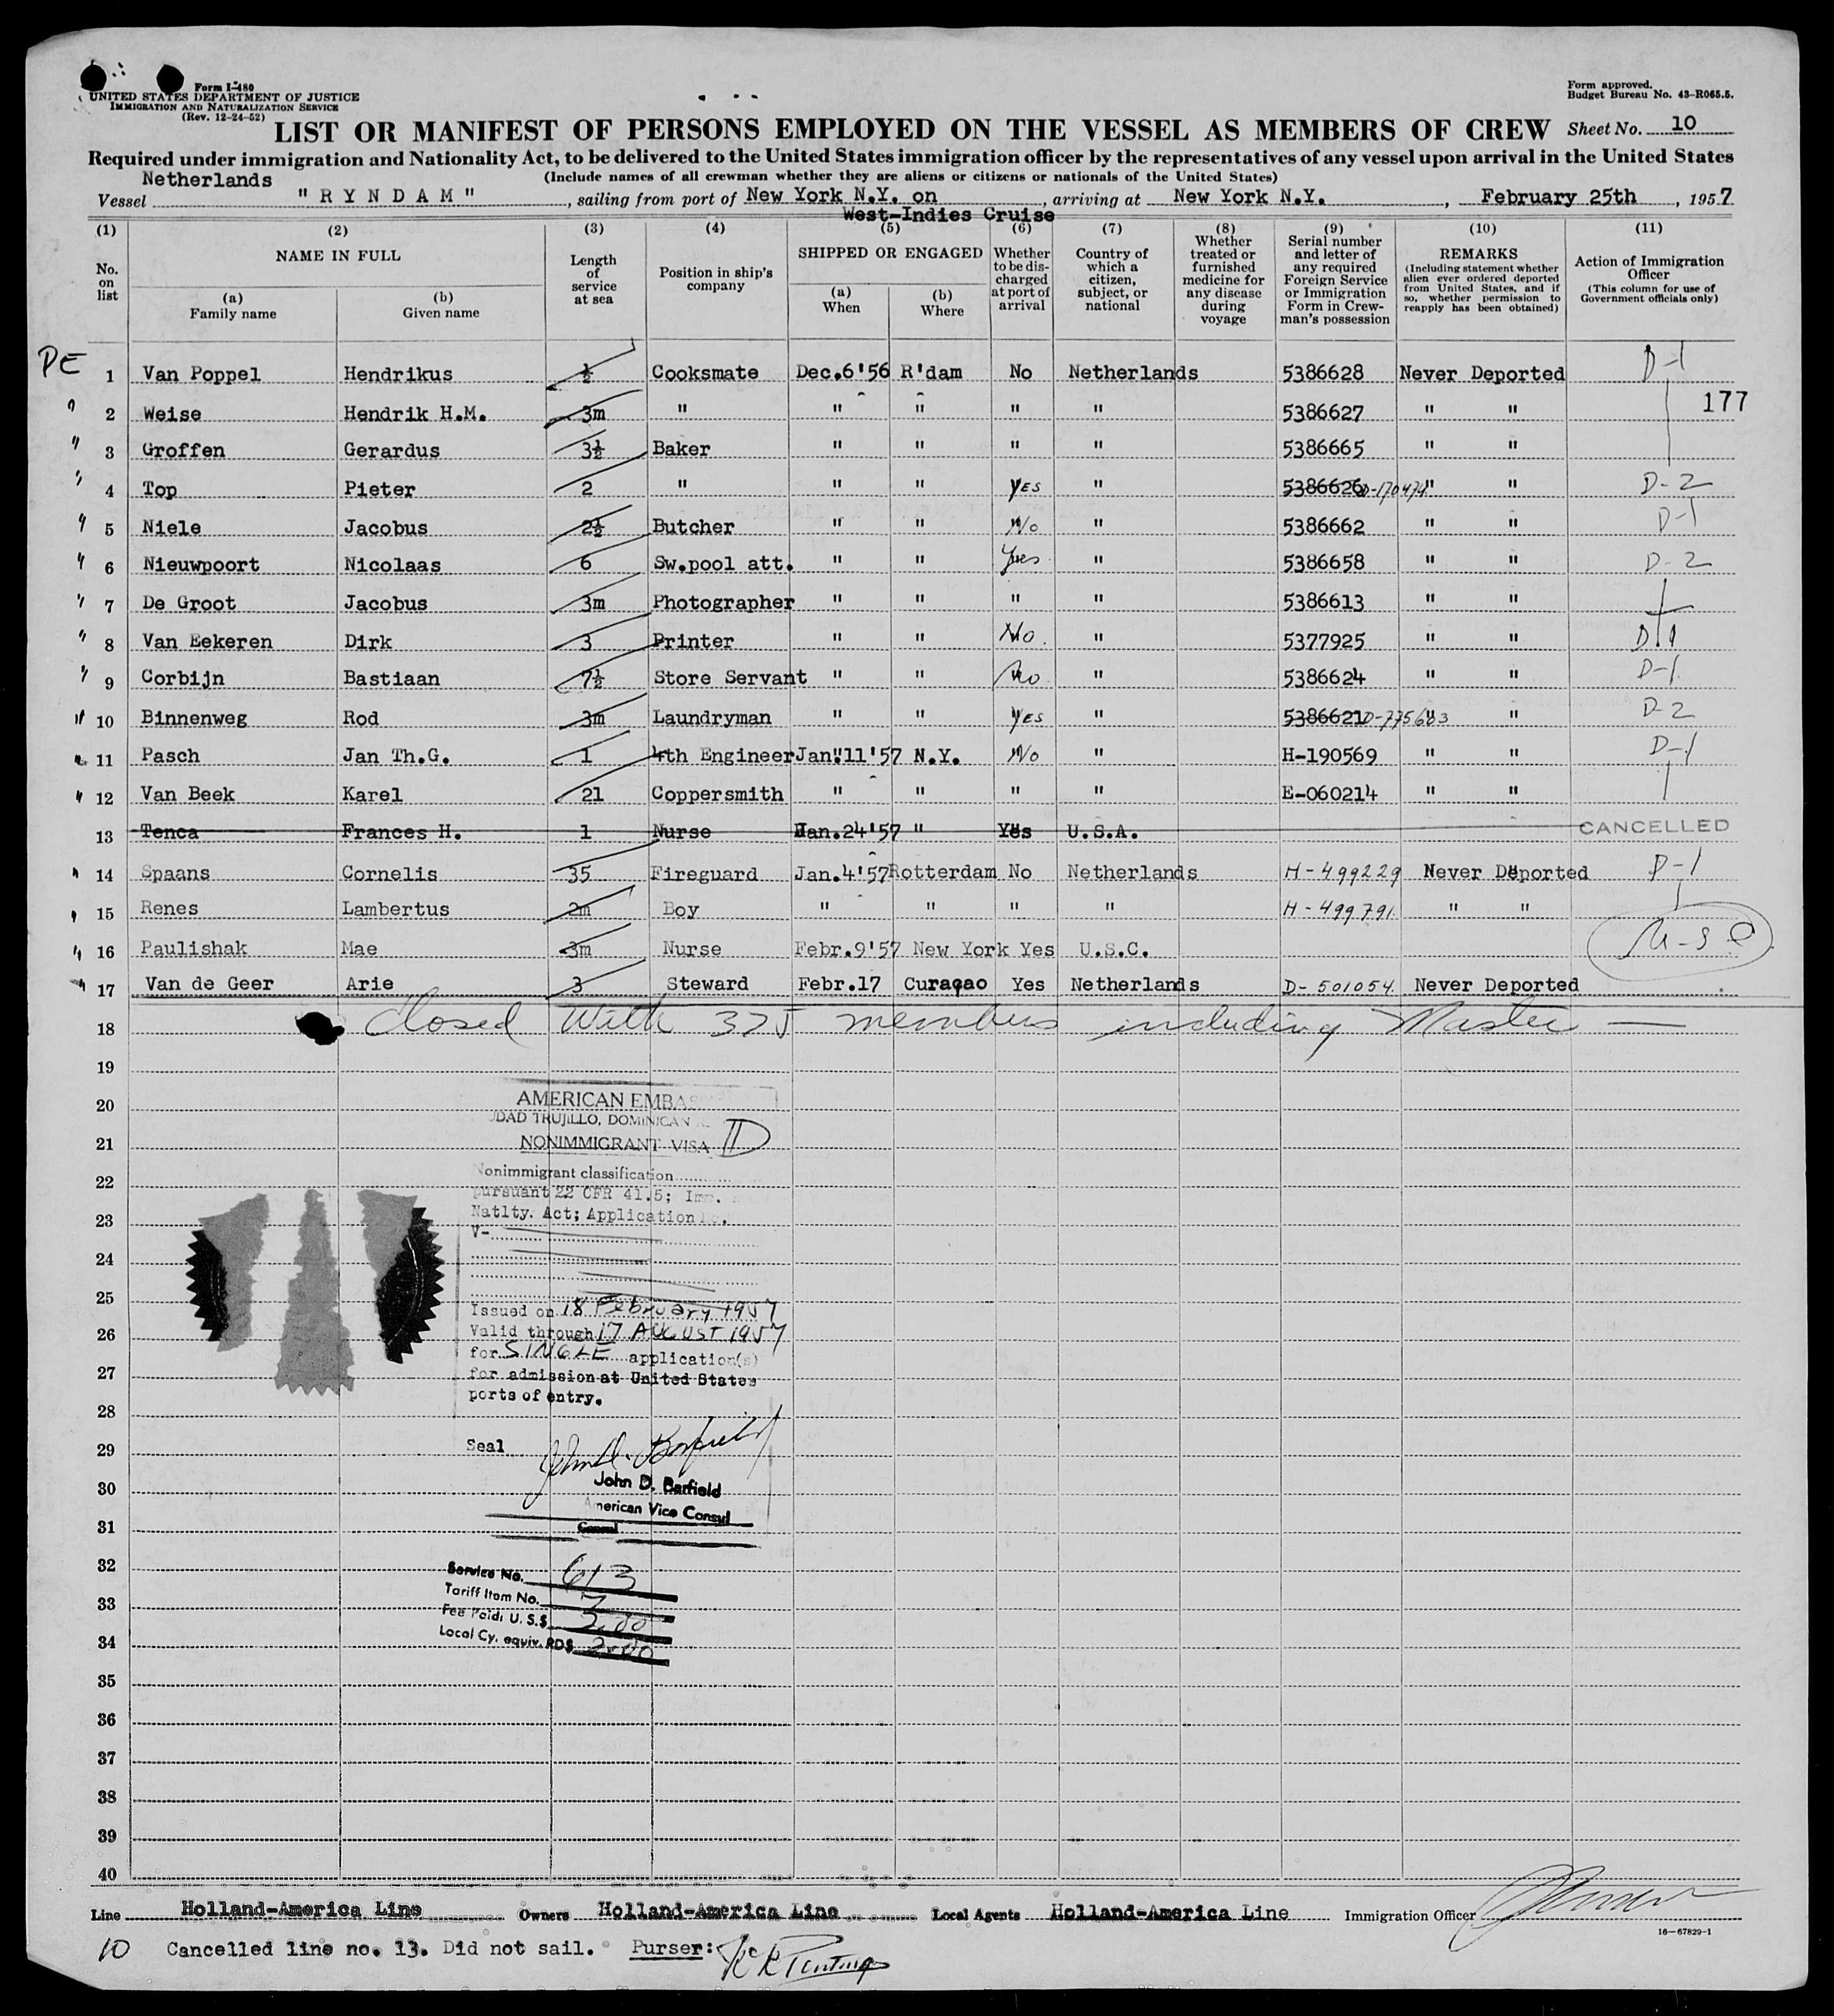 Form I-480
UNITED STATES DEPARTMENT OF JUSTICE
IMMIGRATION AND NATURALIZATION SERVICE
(Rev. 12-24-52)
Form approved.
Budget Bureau No. 43-R065.5.
LIST OR MANIFEST OF PERSONS EMPLOYED ON THE VESSEL AS MEMBERS OF CREW Sheet No. 10
Required under immigration and Nationality Act, to be delivered to the United States immigration officer by the representatives of any vessel upon arrival in the United States
Netherlands (Include names of all crewman whether they are aliens or citizens or nationals of the United States)
Vessel "RYNDAM", sailing from port of New York N.Y. on, arriving at New York N.Y., February 25th, 1957
West-Indies Cruise
(1) (2) (3) (4) (5) (6) (7) (8) (9) (10) (11)
No. on list
NAME IN FULL
(a) Family name
(b) Given name
Length of service at sea
Position in ship's company
SHIPPED OR ENGAGED
(a) When
(b) Where
Whether to be discharged at port of arrival
Country of which a citizen, subject, or national
Whether treated or furnished medicine for any disease during voyage
Serial number and letter of any required Foreign Service or Immigration Form in Crewman's possession
REMARKS
(Including statement whether alien ever ordered deported from United States, and if so, whether permission to reapply has been obtained)
Action of Immigration Officer
(This column for use of Government officials only)
PE 1 Van Poppel Hendrikus ½ Cooksmate Dec.6'56 R'dam No Netherlands 5386628 Never Deported D-1
177
" 2 Weise Hendrik H.M. 3m " " " " " 5386627 " "
" 3 Groffen Gerardus 3½ Baker " " " " 5386665 " "
" 4 Top Pieter 2 " " " YES " 5386626 D-170474 " " D-2
" 5 Niele Jacobus 2½ Butcher " " No " 5386662 " " D-1
" 6 Nieuwpoort Nicolaas 6 Sw.pool att. " " Yes " 5386658 " " D-2
" 7 De Groot Jacobus 3m Photographer " " " " 5386613 " "
" 8 Van Eekeren Dirk 3 Printer " " No. " 5377925 " " D-1
" 9 Corbijn Bastiaan 7½ Store Servant " " No " 5386624 " " D-1
" 10 Binnenweg Rod 3m Laundryman " " YES " 5386621 D-775683 " " D-2
" 11 Pasch Jan Th.G. 1 4th Engineer Jan.11'57 N.Y. No " H-190569 " " D-1
" 12 Van Beek Karel 21 Coppersmith " " " " E-060214 " "
13 Tenca Frances H. 1 Nurse Jan.24'57 " Yes U.S.A. CANCELLED
" 14 Spaans Cornelis 35 Fireguard Jan.4'57 Rotterdam No Netherlands H-499229 Never Deported D-1
" 15 Renes Lambertus 2m Boy " " " " H-499791 " "
" 16 Paulishak Mae 3m Nurse Febr.9'57 New York Yes U.S.C. U-S-C
" 17 Van de Geer Arie 3 Steward Febr.17 Curaçao Yes Netherlands D-501054 Never Deported
18 Closed With 375 members including Master —
19
20
AMERICAN EMBAS
UDAD TRUJILLO, DOMINICAN
21
NONIMMIGRANT VISA D
22
Nonimmigrant classification
pursuant 22 CFR 41.5; Imm.
23
Natlty. Act; Application No.
V-
24
25
Issued on 18 February 1957
26
Valid through 17 AUGUST 1957
for SINGLE application(s)
27
for admission at United States
ports of entry.
28
29
Seal
John D. Barfield
30
John D. Barfield
American Vice Consul
31
Consul
32
Service No. 613
33
Tariff Item No. 7
Fee Paid: U.S.$ 2.00
34
Local Cy. equiv. RD$ 2.00
35
36
37
38
39
40
Line Holland-America Line Owners Holland-America Line Local Agents Holland-America Line Immigration Officer
16—67829-1
10 Cancelled line no. 13. Did not sail. Purser: